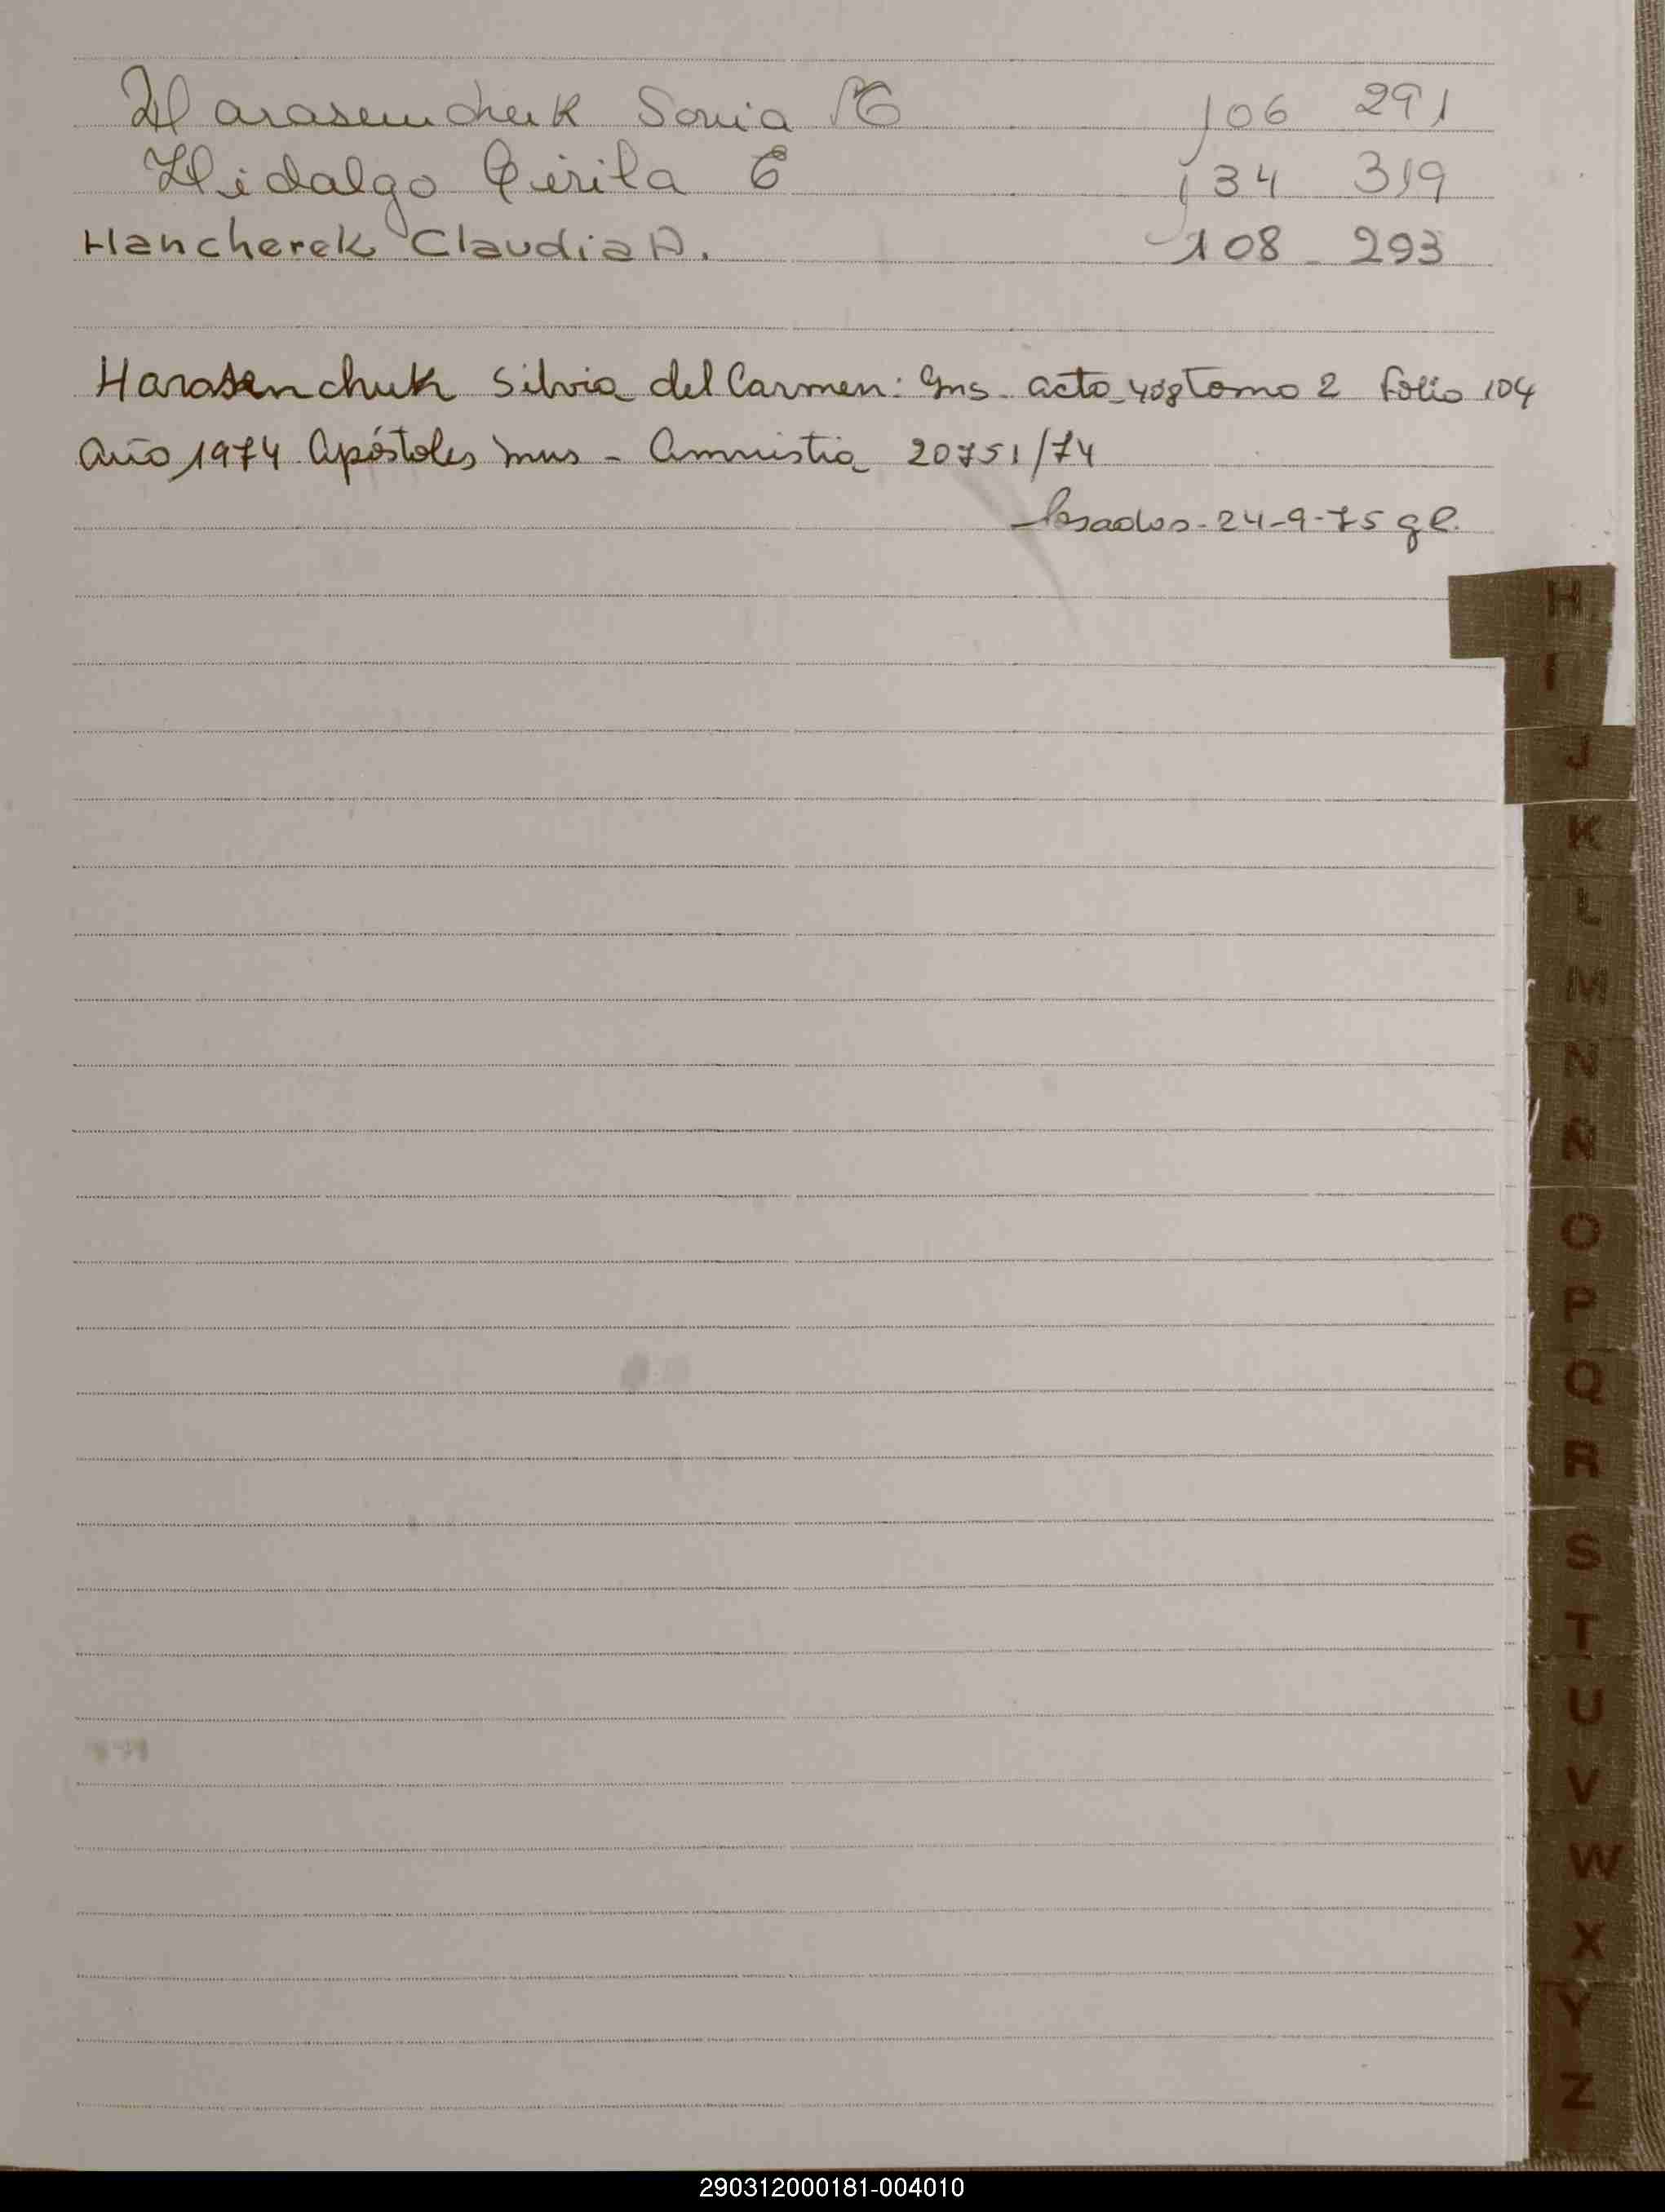 Harasemchuk Sonia 106 291
Hidalgo Cirila E 134 319
Hancherek Claudia A. 108 - 293
Harasenchuk Silvia del Carmen: Ins. acta 408 Tomo 2 folio 104
Año 1974 Apóstoles Mns - Amnistia 20751/74
Posadas - 24-9-75
H
I
J
K
L
M
N
Ñ
O
P
Q
R
S
T
U
V
W
X
Y
Z
290312000181-004010